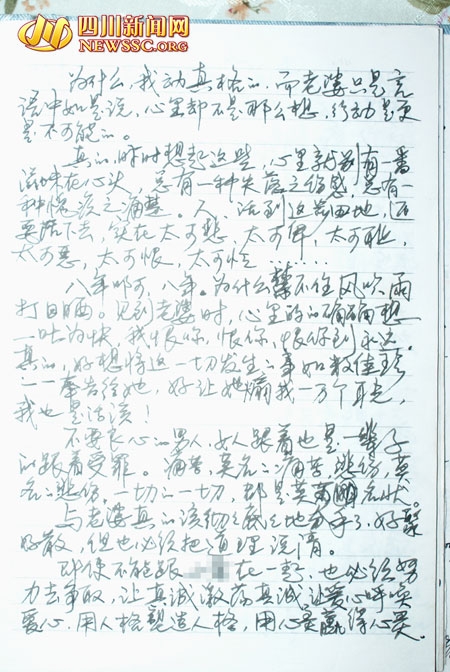 四川新闻网
NEWSSC.ORG
为什么,我动真格的,而老婆只是言
语中如是说,心里却不是那么想,行动是更
是不可能的。
真的,时时想起这些,心里就别有一番
滋味在心头,总有一种失落之伤感,总有一
种愧疚之痛楚。人,活到这苦田地,还
要 下去,实在太可悲,太可 ,太可耻,
太可恶,太可恨,太可 ………
八年呀,八年。为什么禁不住风吹雨
打日晒。见到老婆时,心里的 想
一吐为快,我恨你,恨你,恨你到永远。
真的,好想将这一切发生的事如数
一一奉告给她,好让她煽我一万个耳光,
我也是活该!
不要良心的男人,女人跟着也是一辈子
的跟着受罪。痛苦,莫名的痛苦,悲伤,莫
名的悲伤,一切的一切,都是莫 名状。
与老婆真的该彻彻底底地分手了,好聚
好散,但也必须把道理说清。
即使不能跟 在一起,也必须努
力去争取,让真诚激荡真诚,让爱心呼唤
爱心,用人格塑造人格,用心灵赢得心灵。